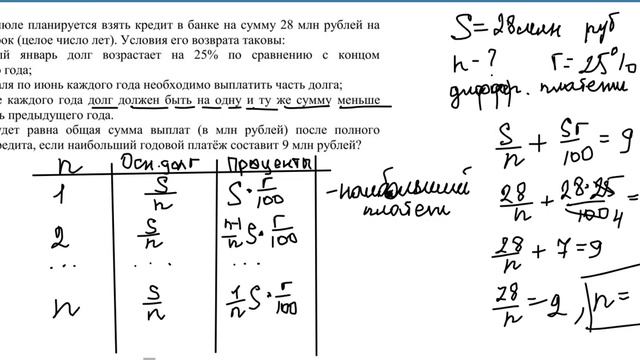 юле планируется взять кредит в банке на сумму 28 млн рублей на
рок (целое число лет). Условия его возврата таковы:
ый январь долг возрастает на 25% по сравнению с концом
о года;
аля по июнь каждого года необходимо выплатить часть долга;
е каждого года долг должен быть на одну и ту же сумму меньше
ь предыдущего года.
удет равна общая сумма выплат (в млн рублей) после полного
редита, если наибольший годовой платёж составит 9 млн рублей?
S = 28 млн руб
n - ? r = 25%
диффер. платежи
S/n + Sr/100 = 9
28/n + 28·25/100 4 =
28/n + 7 = 9
28/n = 2, n =
n Осн. долг Проценты
1 S/n S · r/100 - наибольший платеж
2 S/n n-1/n S · r/100
... ... ...
n S/n 1/n S · r/100